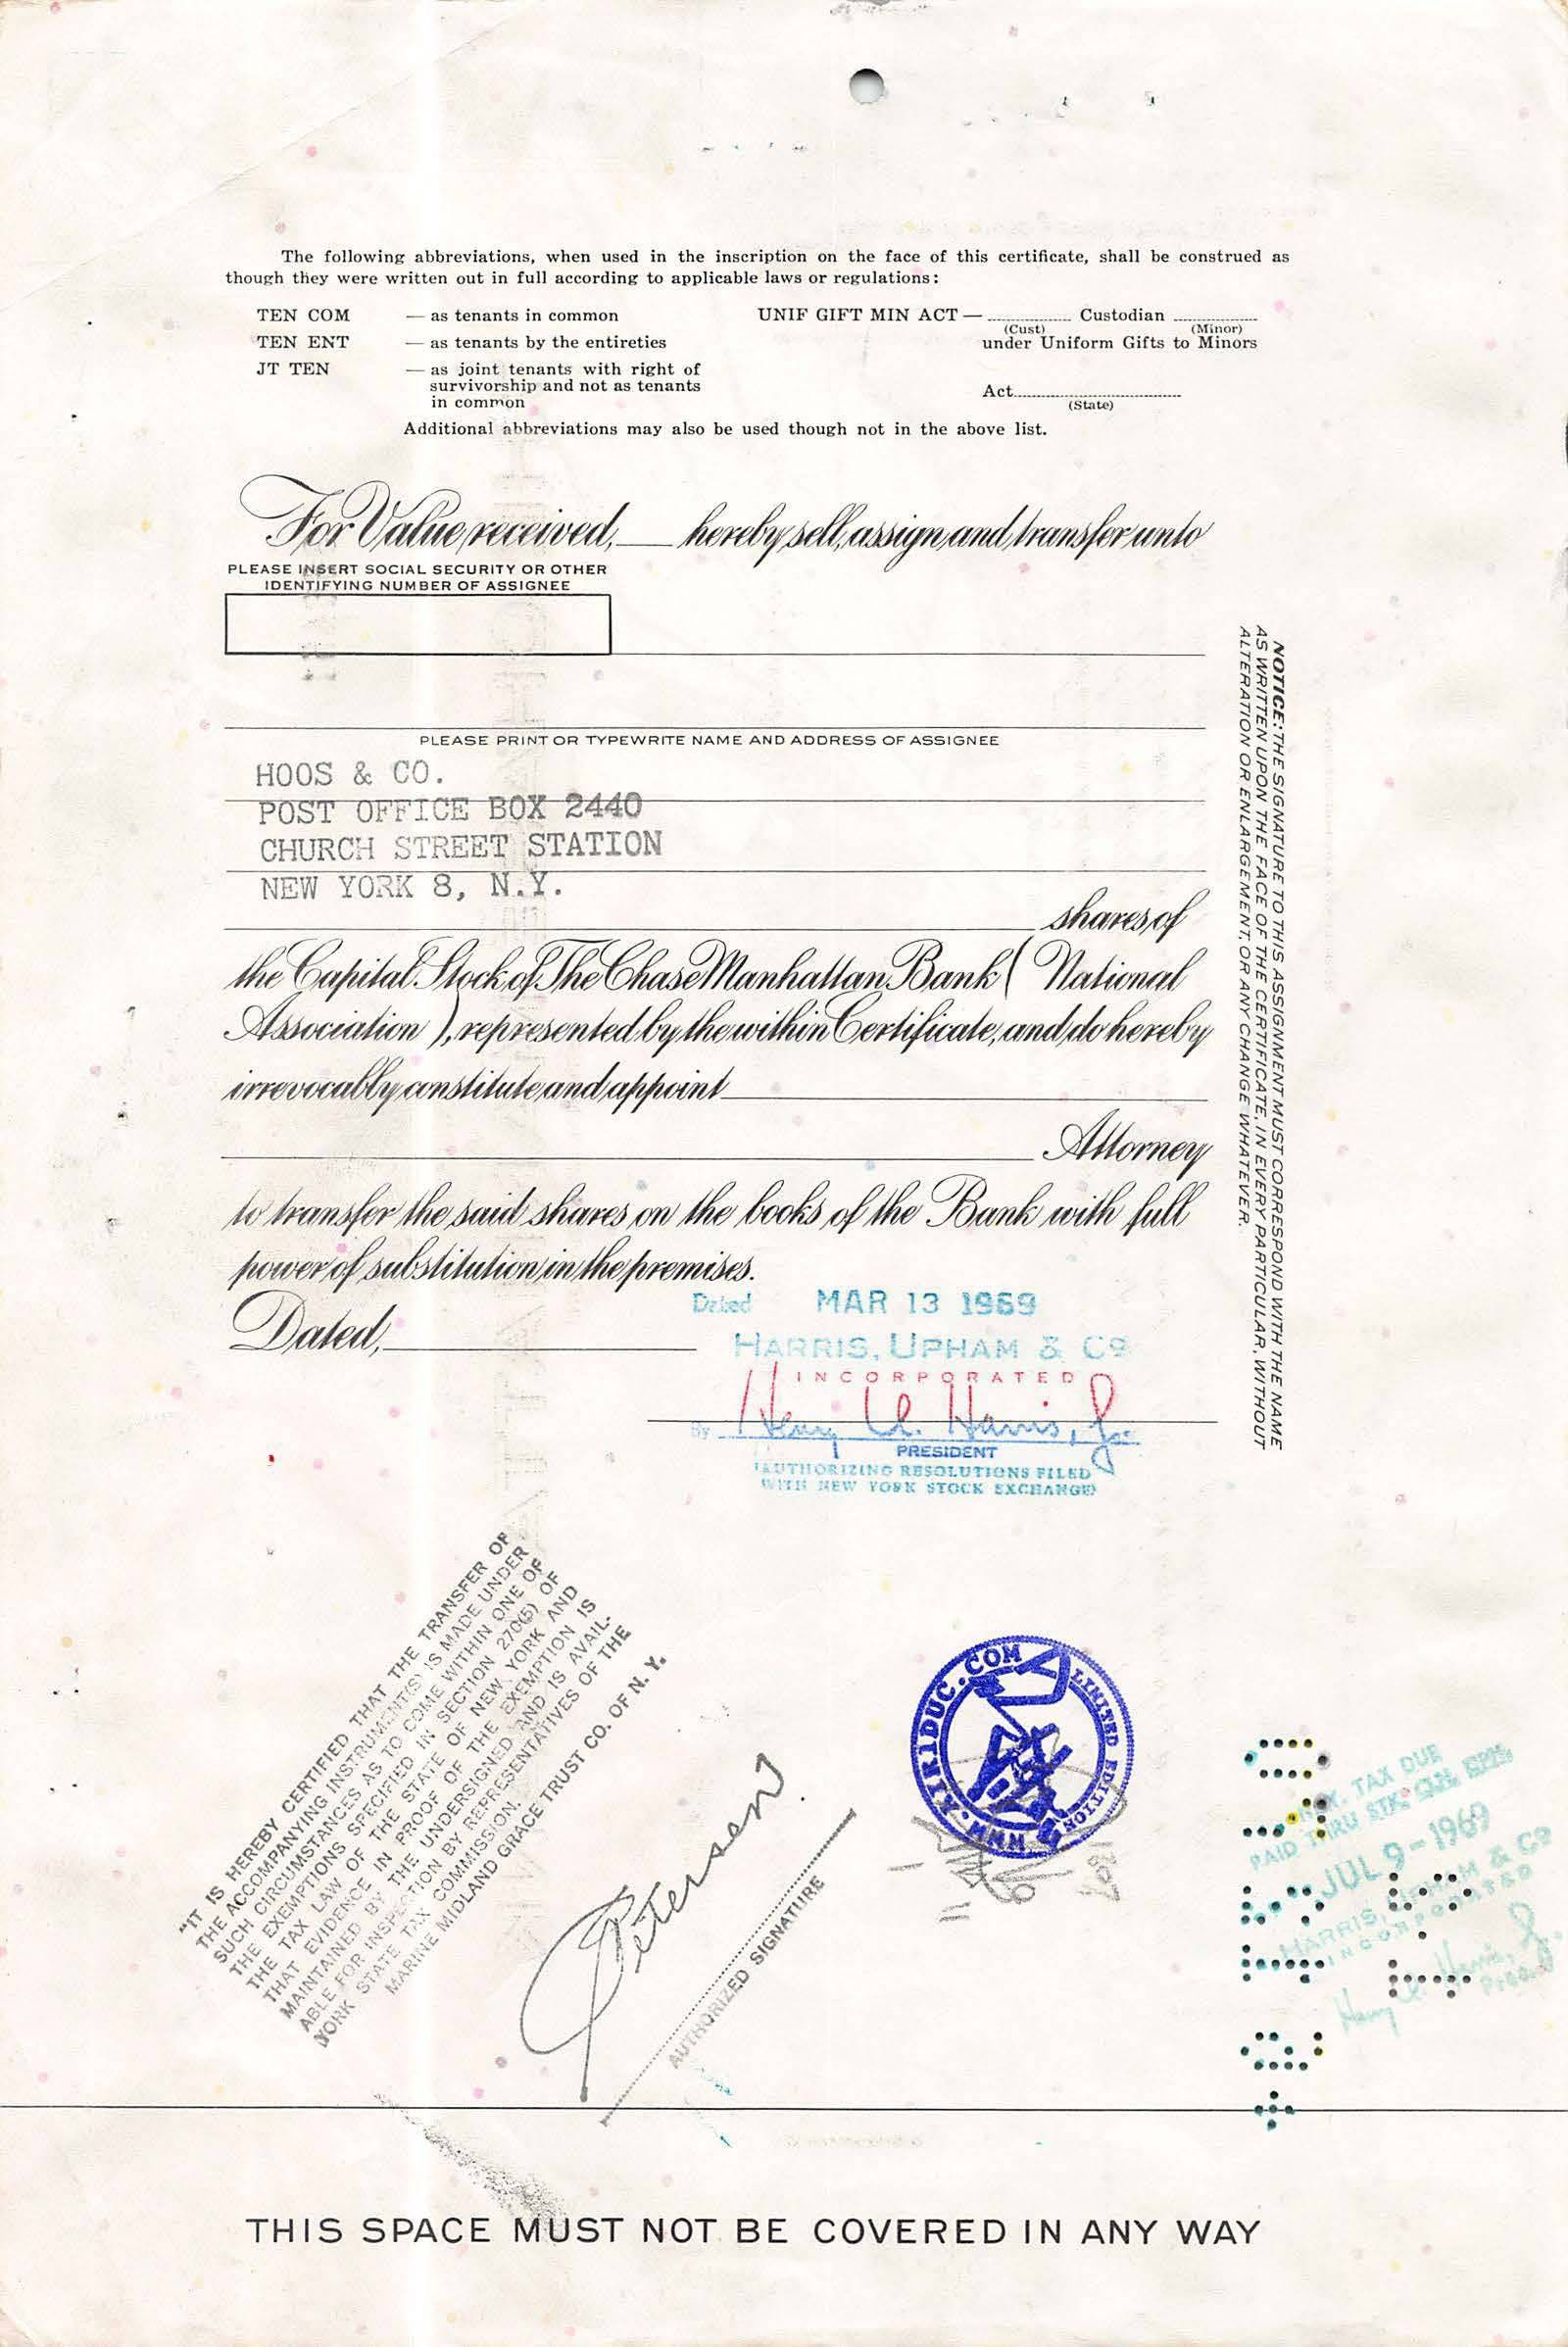 The following abbreviations, when used in the inscription on the face of this certificate, shall be construed as
though they were written out in full according to applicable laws or regulations:
TEN COM — as tenants in common UNIF GIFT MIN ACT — Custodian
(Cust) (Minor)
TEN ENT — as tenants by the entireties under Uniform Gifts to Minors
JT TEN — as joint tenants with right of
survivorship and not as tenants
in common
Act
(State)
Additional abbreviations may also be used though not in the above list.
For Value received, hereby sell, assign and transfer unto
PLEASE INSERT SOCIAL SECURITY OR OTHER
IDENTIFYING NUMBER OF ASSIGNEE
PLEASE PRINT OR TYPEWRITE NAME AND ADDRESS OF ASSIGNEE
HOOS & CO.
POST OFFICE BOX 2440
CHURCH STREET STATION
NEW YORK 8, N.Y.
shares of
the Capital Stock of The Chase Manhattan Bank ( National
Association ), represented by the within Certificate, and do hereby
irrevocably constitute and appoint
Attorney
to transfer the said shares on the books of the Bank with full
power of substitution in the premises.
Dated,
Dated MAR 13 1969
HARRIS, UPHAM & Co
INCORPORATED
By Henry U. Harris, Jr.
PRESIDENT
(AUTHORIZING RESOLUTIONS FILED
WITH NEW YORK STOCK EXCHANGE)
NOTICE: THE SIGNATURE TO THIS ASSIGNMENT MUST CORRESPOND WITH THE NAME
AS WRITTEN UPON THE FACE OF THE CERTIFICATE, IN EVERY PARTICULAR, WITHOUT
ALTERATION OR ENLARGEMENT, OR ANY CHANGE WHATEVER.
"IT IS HEREBY CERTIFIED THAT THE TRANSFER OF
THE ACCOMPANYING INSTRUMENT(S) IS MADE UNDER
SUCH CIRCUMSTANCES AS TO COME WITHIN ONE OF
THE EXEMPTIONS SPECIFIED IN SECTION 270(5) OF
THE TAX LAW OF THE STATE OF NEW YORK AND
THAT EVIDENCE IN PROOF OF THE EXEMPTION IS
MAINTAINED BY THE UNDERSIGNED AND IS AVAIL-
ABLE FOR INSPECTION BY REPRESENTATIVES OF THE
YORK STATE TAX COMMISSION.
MARINE MIDLAND GRACE TRUST CO. OF N. Y.
Petersen
AUTHORIZED SIGNATURE
WWW.KIRIDUC.COM
LIMITED EDITION
TAX DUE
PAID THRU STK.
JUL 9 - 1969
HARRIS, UPHAM & Co
INCORPORATED
Henry U. Harris, Jr.
THIS SPACE MUST NOT BE COVERED IN ANY WAY